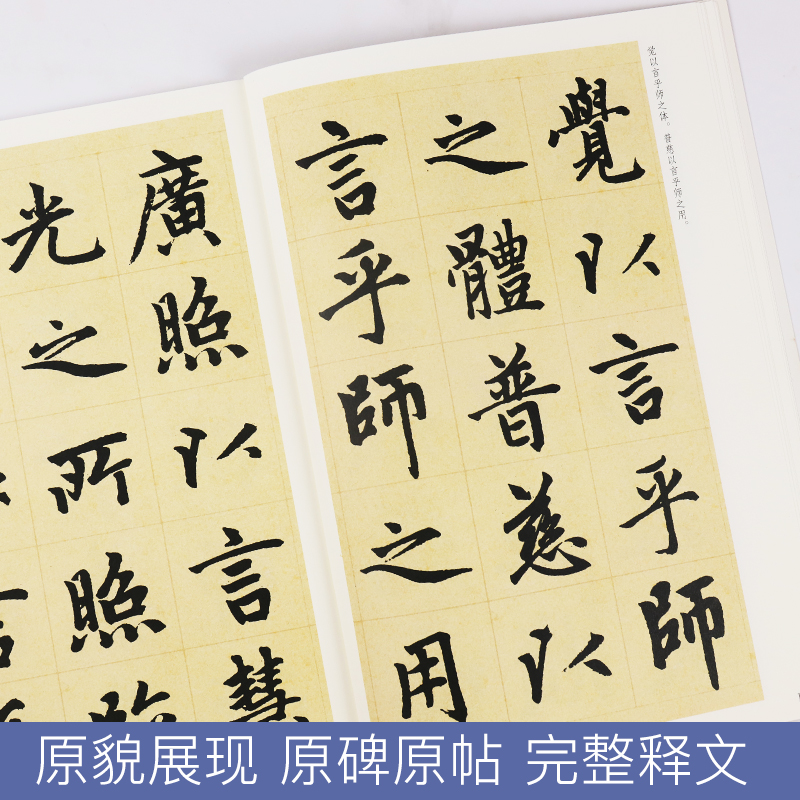 觉以言乎师之体。普慈以言乎师之用。
覺以言乎師
之體普慈以
言乎師之用
廣照以言慧
光之所照
原貌展现 原碑原帖 完整释文